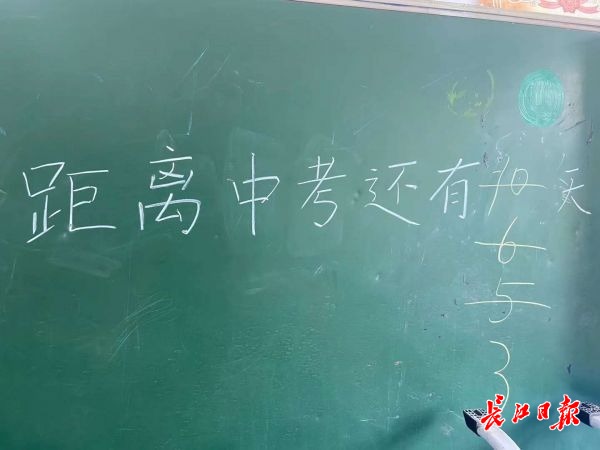 距离中考还有10天
6
5
3
长江日报